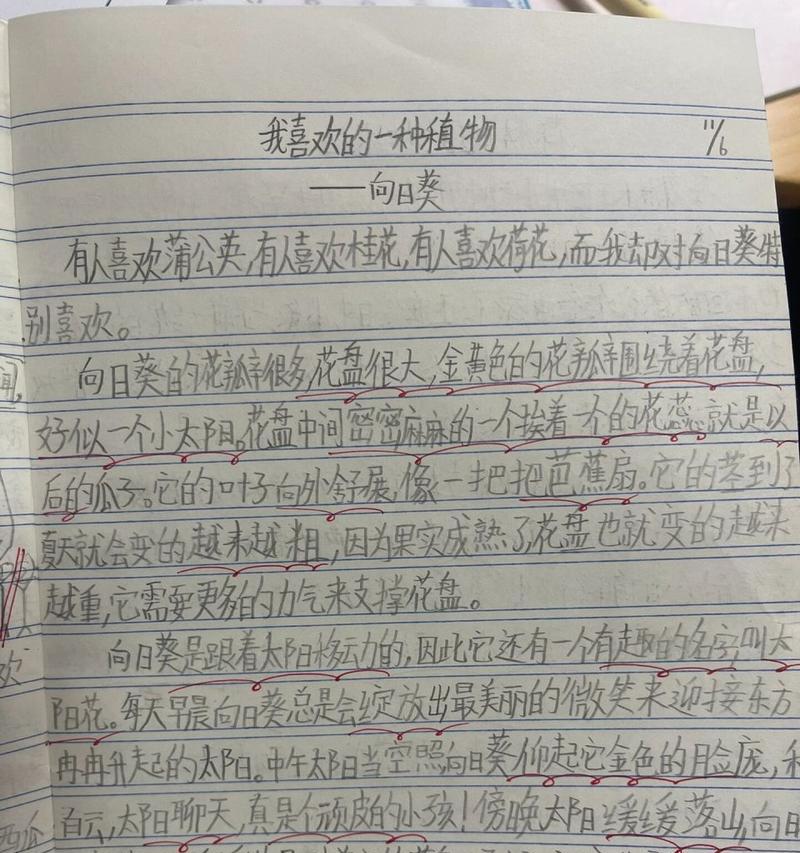 我喜欢的一种植物
11/6
——向日葵
有人喜欢蒲公英,有人喜欢桂花,有人喜欢荷花,而我却对向日葵特
别喜欢。
向日葵的花瓣很多,花盘很大,金黄色的花瓣围绕着花盘,
好似一个小太阳。花盘中间密密麻麻的一个挨着一个的花蕊就是以
后的瓜子。它的叶子向外舒展,像一把把芭蕉扇。它的茎到了
夏天就会变的越来越粗,因为果实成熟了,花盘也就变的越来
越重,它需要更多的力气来支撑花盘。
向日葵是跟着太阳移动的,因此它还有一个有趣的名字,叫太
阳花。每天早晨向日葵总是会绽放出最美丽的微笑来迎接东方
冉冉升起的太阳。中午太阳当空照,向日葵仰起它金色的脸庞,和
太阳聊天,真是个顽皮的小孩!傍晚太阳缓缓落山,向日
西瓜